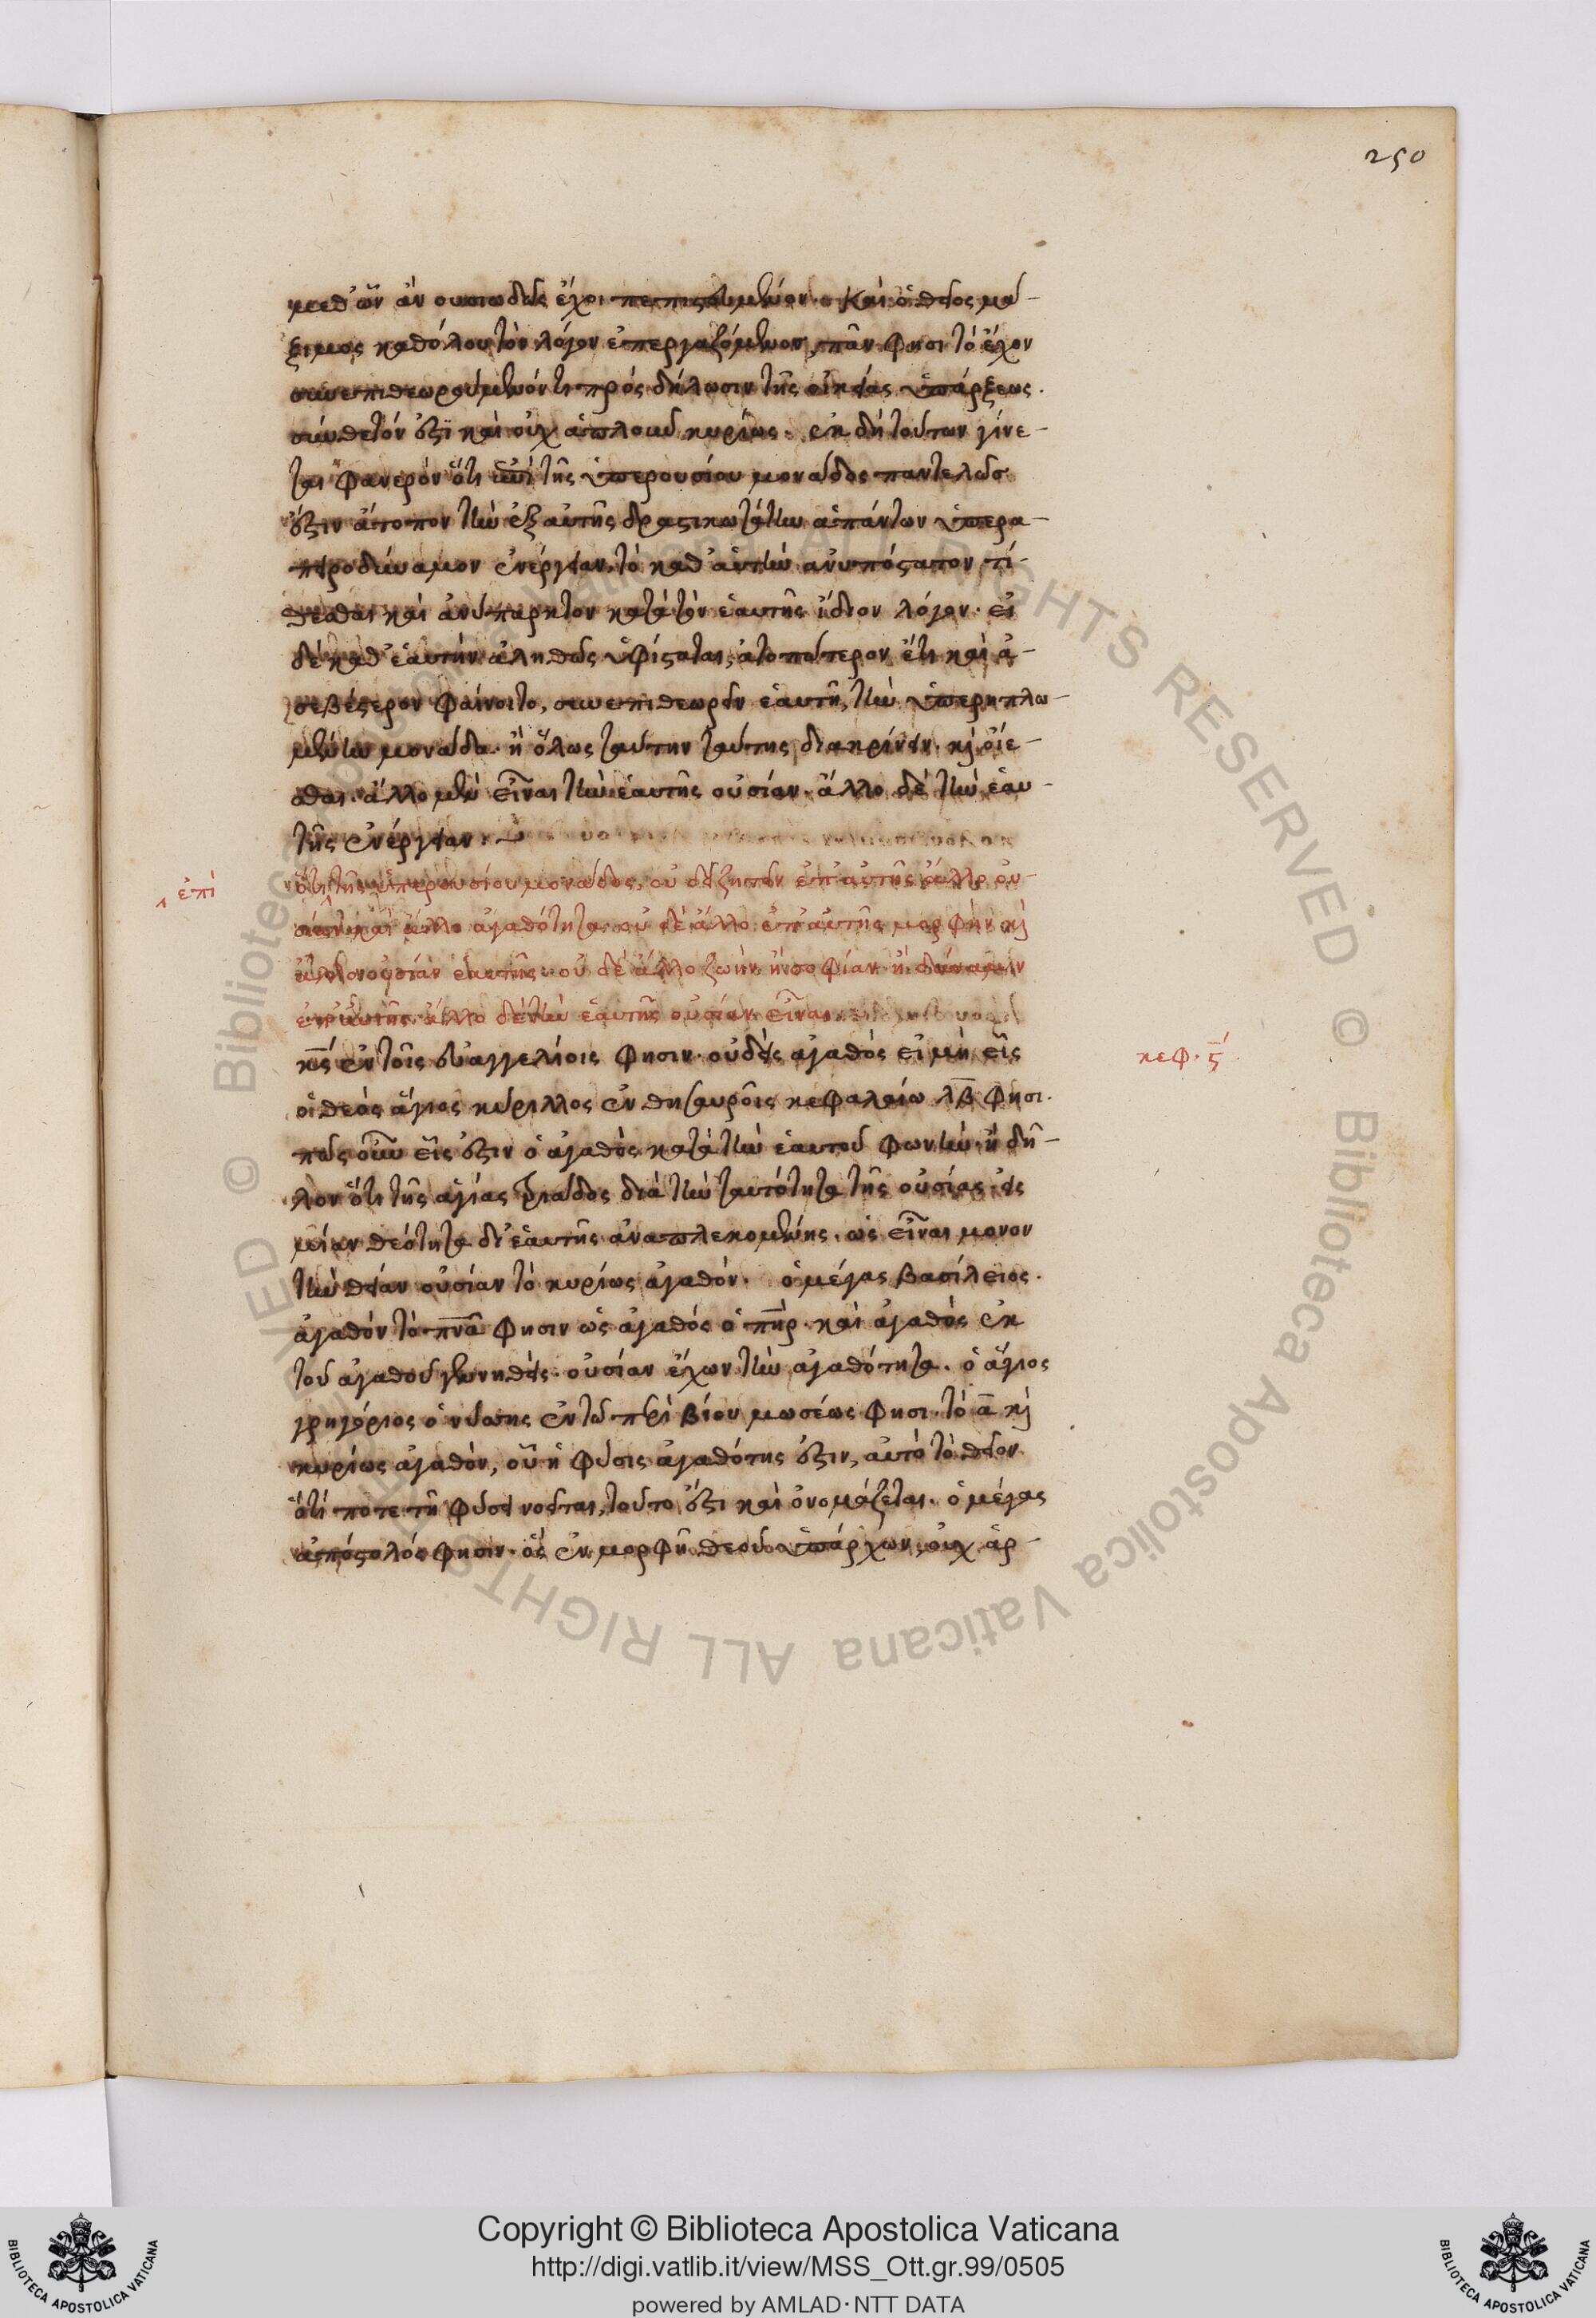 250
μεθ' ὧν ἂν οὐσιωδῶς ἔχοι πεπιστευμένον. Καὶ ὁ θεῖος μά-
ξιμος καθόλου τὸν λόγον ἐπεργαζόμενος, πᾶν φησι τὸ ἔχον
συνεπιθεωρούμενόν τι πρὸς δήλωσιν τῆς οἰκείας ὑπάρξεως.
σύνθετόν ἐστι καὶ οὐχ ἁπλοῦν κυρίως. ἐκ δὴ τούτων γίνε-
ται φανερὸν ὅτι ἐπὶ τῆς ὑπερουσίου μονάδος παντελῶς
ἐστιν ἄτοπον τὴν ἐξ αὐτῆς δραστικωτάτην ἁπάντων ὑπερα-
πειροδύναμον ἐνέργειαν, τὸ καθ' αὑτὴν ἀνυπόστατον τί-
θεσθαι καὶ ἀνύπαρκτον κατὰ τὸν ἑαυτῆς ἴδιον λόγον. εἰ
δὲ καθ' ἑαυτὴν ἀληθῶς ὑφίσταται, ἀτοπώτερον ἔτι καὶ ἀ-
σεβέστερον φαίνοιτο, συνεπιθεωρεῖν ἑαυτῇ, τὴν ὑπερηπλω-
μένην μονάδα. ἢ ὅλως ταύτην ταύτης διακρίνειν. κ(αὶ) οἴε-
σθαι. ἄλλο μὲν εἶναι τὴν ἑαυτῆς οὐσίαν. ἄλλο δὲ τὴν ἑαυ-
τῆς ἐνέργειαν.
ὅτι τῆς ὑπερουσίου μονάδος, οὐ δεῖ ζητεῖν ἐπ' αὐτῆς ἄλλο οὐ-
σίαν καὶ ἄλλο ἀγαθότητα. οὐδὲ ἄλλο ἐπ' αὐτῆς μορφὴν κ(αὶ)
ἄλλο οὐσίαν ἑαυτῆς. οὐδὲ ἄλλο ζωὴν ἢ σοφίαν ἢ δύναμιν
ἐπ' αὐτῆς. ἄλλο δὲ τὴν ἑαυτῆς οὐσίαν εἶναι.
ἐπὶ
κς ἐν τοῖς εὐαγγελίοις φησιν. οὐδεὶς ἀγαθὸς εἰ μὴ εἷς
κεφ. ς
ὁ θεὸς ἅγιος κύριλλος ἐν θησαυροῖς κεφαλαίω λβ φησι.
πῶς οὖν εἷς ἐστιν ὁ ἀγαθὸς κατὰ τὴν ἑαυτοῦ φωνὴν. ἢ δῆ-
λον ὅτι τῆς ἁγίας τριάδος διὰ τὴν ταυτότητα τῆς οὐσίας εἰς
μίαν θεότητα δι' ἑαυτῆς ἀναπλεκομένης. ὡς εἶναι μονον
τὴν θείαν οὐσίαν τὸ κυρίως ἀγαθόν. ὁ μέγας βασίλειος.
ἀγαθὸν τὸ πνα φησιν ὡς ἀγαθός ὁ πηρ. καὶ ἀγαθὸς ἐκ
τοῦ ἀγαθοῦ γεννηθείς. οὐσίαν ἔχων τὴν ἀγαθότητα. ὁ ἅγιος
γρηγόριος ὁ νύσσης ἐν τῶ περὶ βίου μωσέως φησι. τὸ α κ(αὶ)
κυρίως ἀγαθόν, οὗ ἡ φύσις ἀγαθότης ἐστιν, αὐτὸ τὸ θεῖον
ὅτι ποτε τῇ φύσει νοεῖται, τοῦτο ἔστι καὶ ὀνομάζεται. ὁ μέγας
ἀπόστολός φησιν. ὃς ἐν μορφῇ θεοῦ ὑπάρχων, οὐχ ἁρ-
Copyright © Biblioteca Apostolica Vaticana
http://digi.vatlib.it/view/MSS_Ott.gr.99/0505
powered by AMLAD·NTT DATA